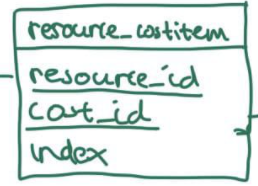 resource_costitem
resource_id
cost_id
index